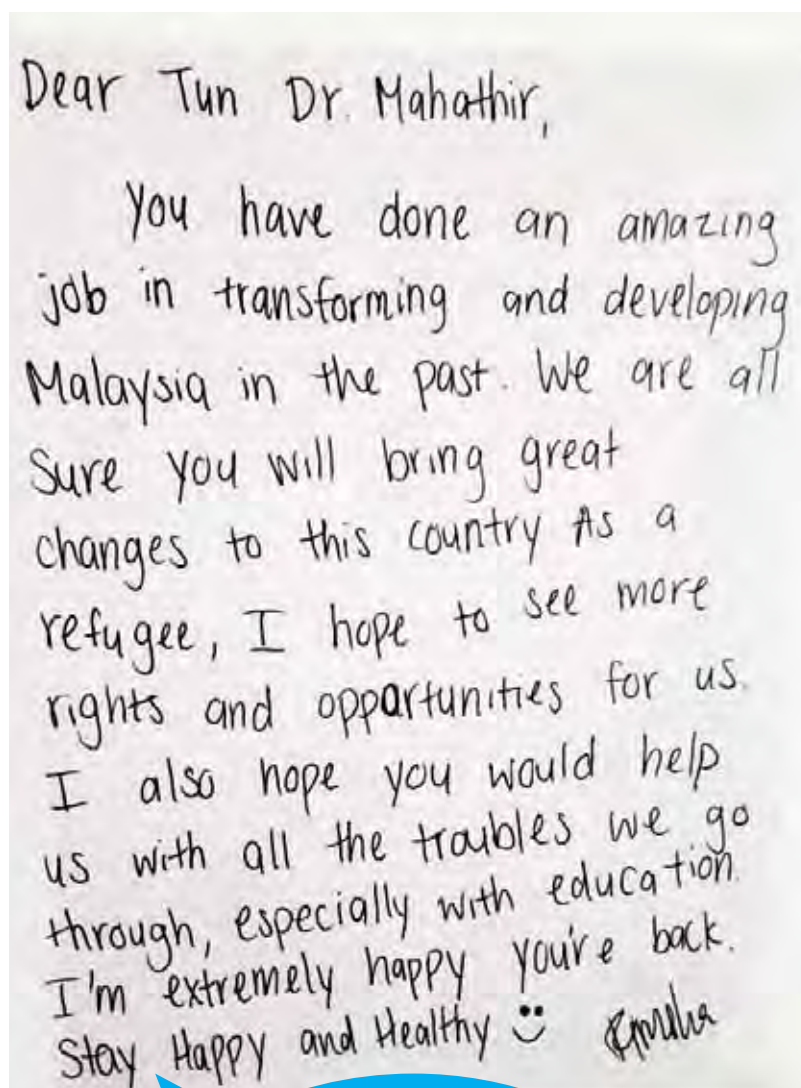 Dear Tun Dr. Mahathir,
You have done an amazing
job in transforming and developing
Malaysia in the past. We are all
Sure you will bring great
changes to this country As a
refugee, I hope to see more
rights and opportunities for us.
I also hope you would help
us with all the troubles we go
through, especially with education.
I'm extremely happy you're back.
Stay Happy and Healthy